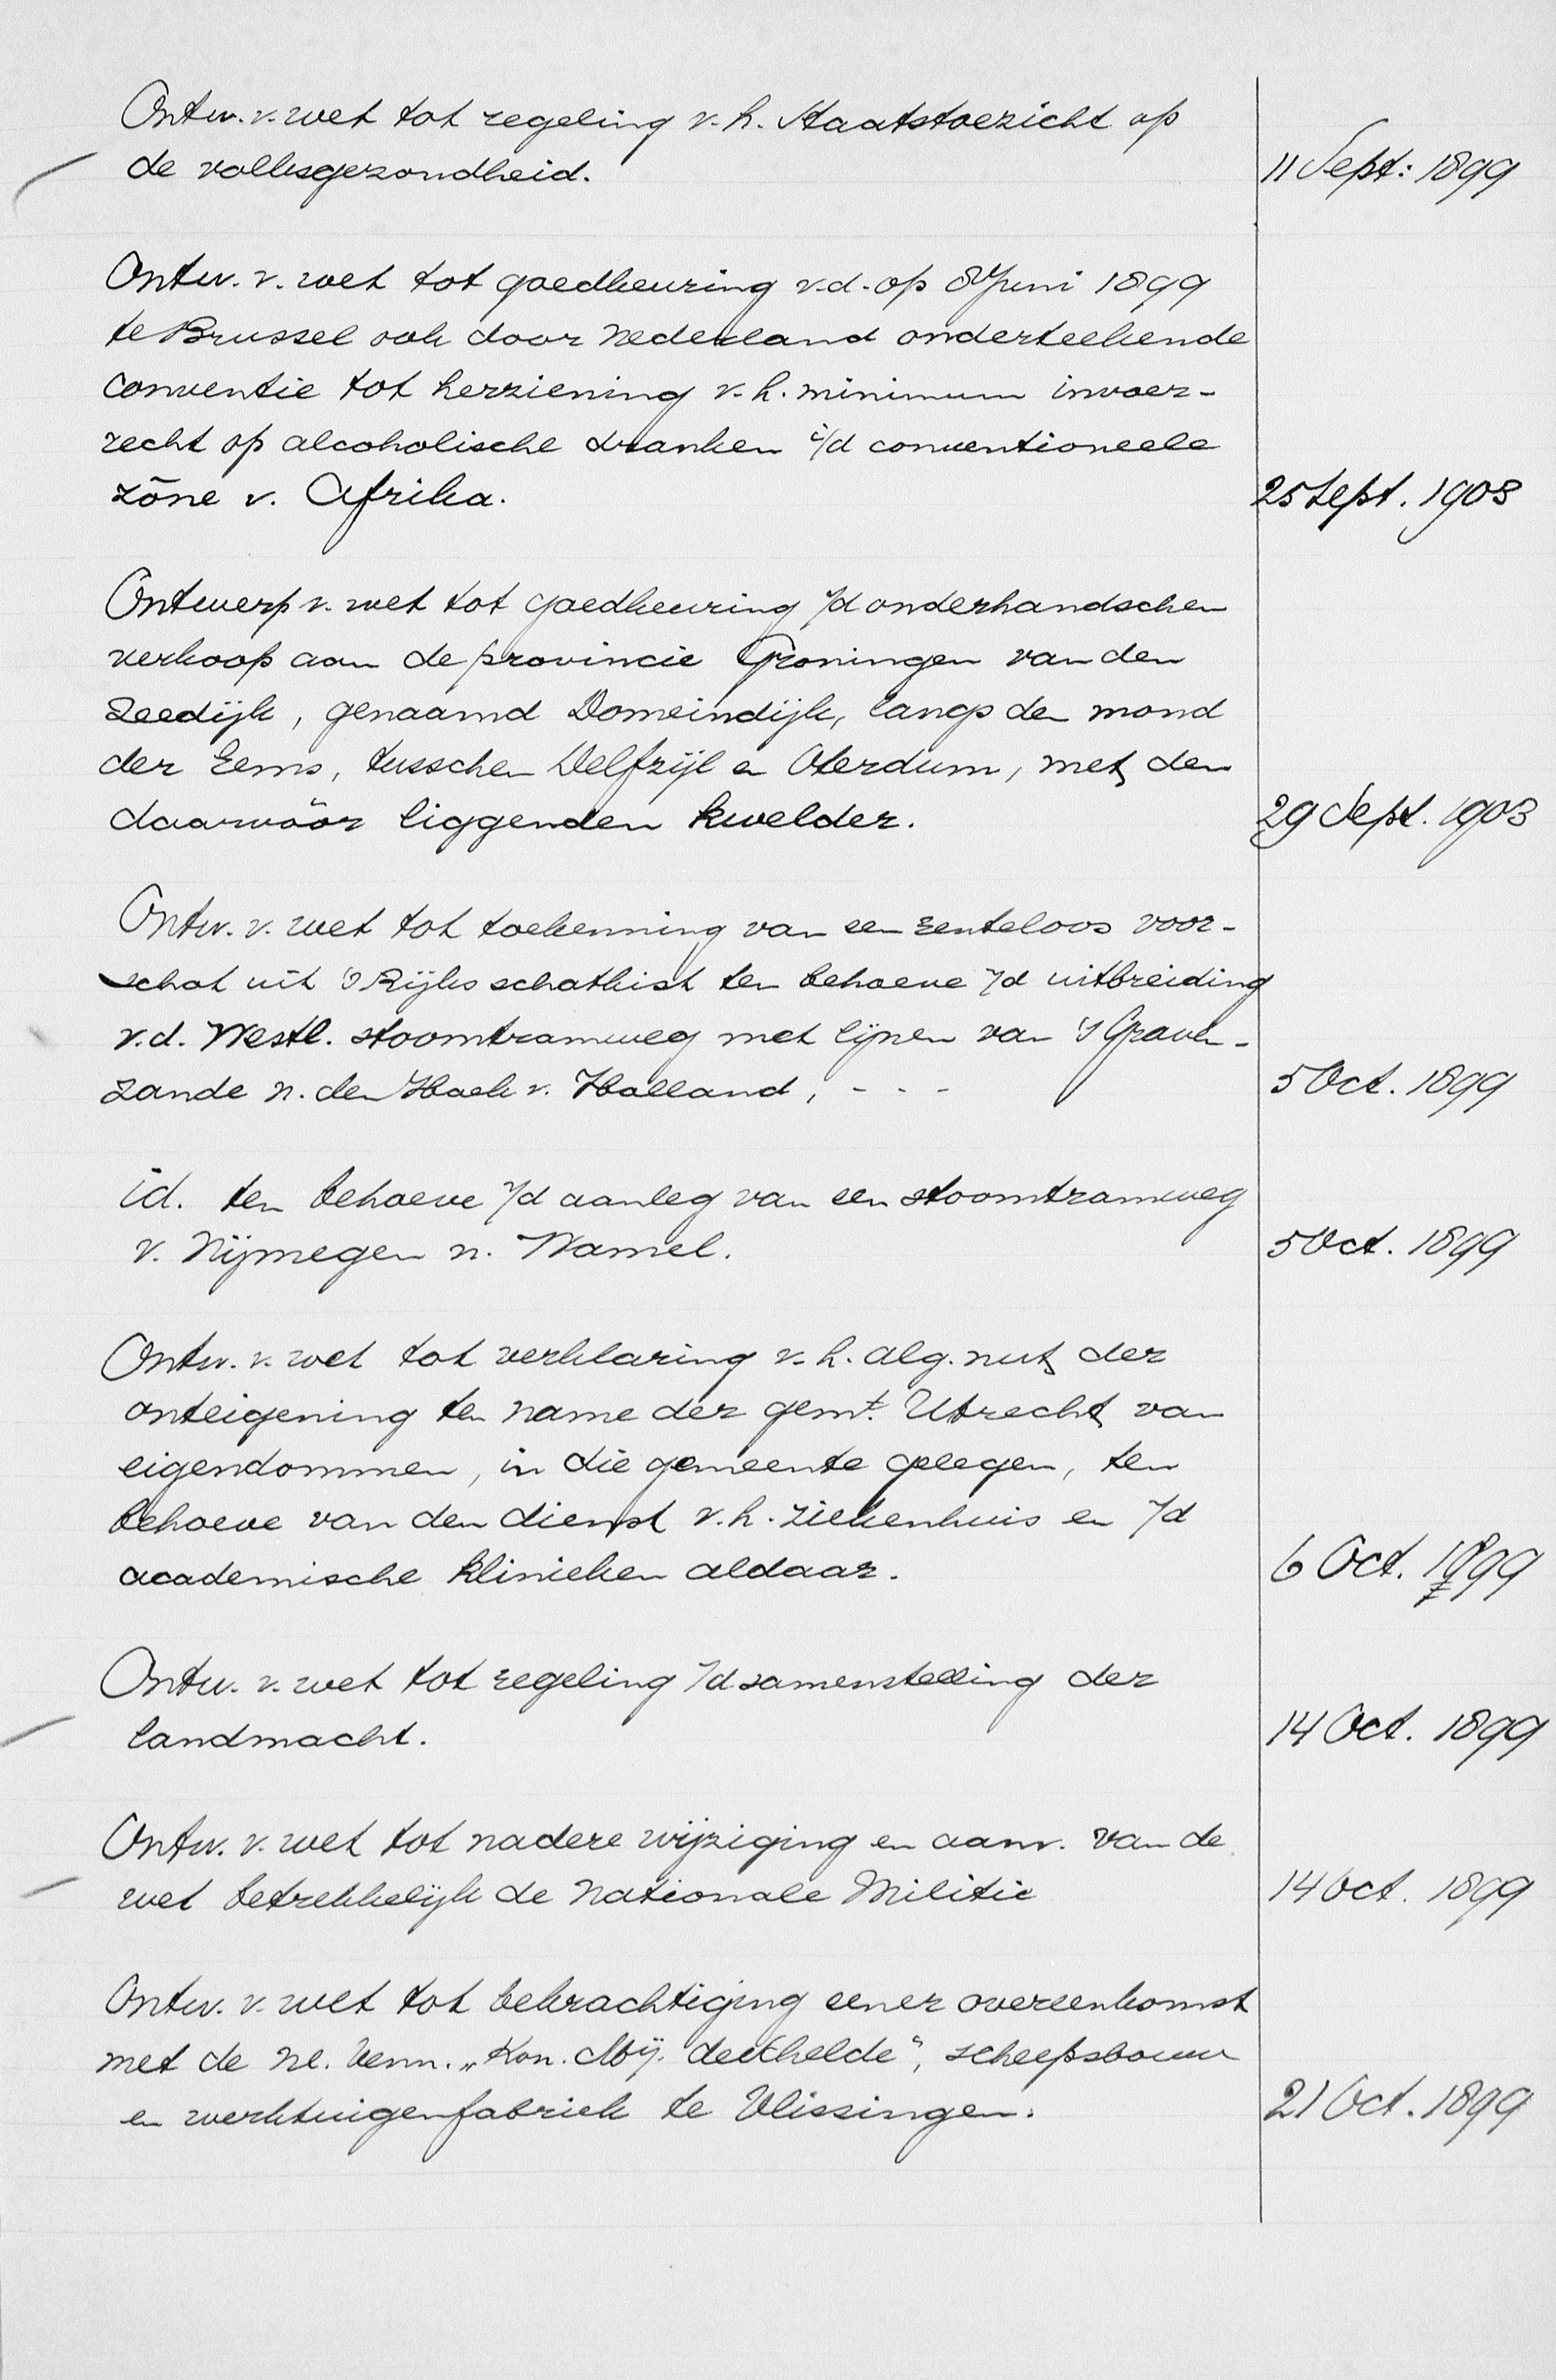 Ontw. v. wet tot regeling v. h. Staatstoezicht op
de volksgezondheid.
11 Sept: 1899
Ontw. v. wet tot goedkeuring v.d. op 8 Juni 1899
te Brussel ook door Nederland onderteekende
conventie tot herziening v. h. minimum invoer-
recht op alcoholische dranken i/d conventioneele
zône v. Afrika.
25 Sept. 1903
Ontwerp v. wet tot goedkeuring v/d onderhandschen
verkoop aan de provincie Groningen van den
Zeedijk, genaamd Domeindijk, langs den mond
der Eems, tusschen Delfzijl en Oterdum, met den
daarvóór liggenden kwelder.
29 Sept. 1903
Ontw. v. wet tot toekenning van een renteloos voor-
schot uit 's Rijks schatkist ten behoeve v/d uitbreiding
v.d. Westl. stoomtramweg met lijnen van 's Graven-
zande n. den Hoek v. Holland, - - -
5 Oct. 1899
id. ten behoeve v/d aanleg van een stoomtramweg
v. Nijmegen n. Wamel.
5 Oct. 1899
Ontw. v. wet tot verklaring v. h. alg. nut der
onteigening ten name der gemt. Utrecht van
eigendommen, in die gemeente gelegen, ten
behoeve van den dienst v. h. ziekenhuis en v/d
academische klinieken aldaar.
6 Oct. 1899
Ontw. v. wet tot regeling v/d samenstelling der
landmacht.
14 Oct. 1899
Ontw. v. wet tot nadere wijziging en aanv. van de
wet betrekkelijk de Nationale Militie
14 Oct. 1899
Ontw. v. wet tot bekrachtiging eener overeenkomst
met de Nl. Venn. „Kon. Mij. de Schelde", scheepsbouw
en werktuigenfabriek te Vlissingen.
21 Oct. 1899